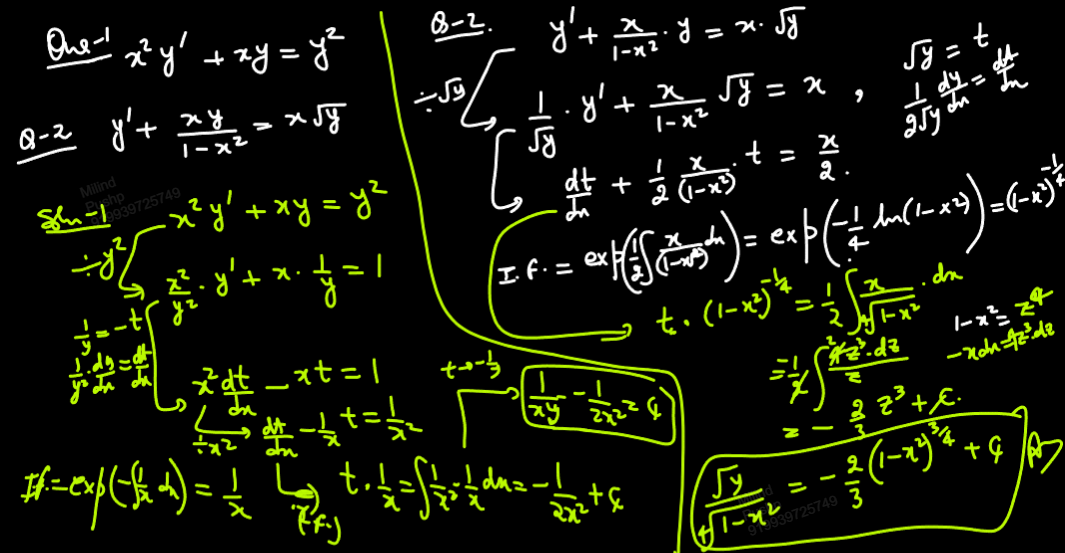 Que-1 x² y' + xy = y²
Q-2 y' + xy/(1-x²) = x √y
Soln-1 x² y' + xy = y²
÷y²
x²/y² · y' + x · 1/y = 1
1/y = -t
1/y² · dy/dx = dt/dx
x² dt/dx - xt = 1
÷x² dt/dx - 1/x t = 1/x²
If = exp(-∫1/x dx) = 1/x
(I.F.) t · 1/x = ∫ 1/x² · 1/x dx = -1/2x² + C₁
t → -1/y
1/xy - 1/2x² = C₁
Q-2. y' + x/(1-x²) · y = x · √y
÷√y
1/√y · y' + x/(1-x²) √y = x ,
√y = t
1/2√y dy/dx = dt/dx
dt/dx + 1/2 x/(1-x²) · t = x/2.
I.F. = exp(1/2 ∫ x/(1-x²) dx) = exp(-1/4 ln(1-x²)) = (1-x²)^-1/4
t · (1-x²)^-1/4 = 1/2 ∫ x/⁴√(1-x²) · dx
1-x² = z⁴
-x dx = 2z³ · dz
= -1/2 ∫ 2z³ · dz/z
= -2/3 z³ + C.
√y/⁴√(1-x²) = -2/3 (1-x²)^3/4 + C₁
Milind
Pushp
919939725749